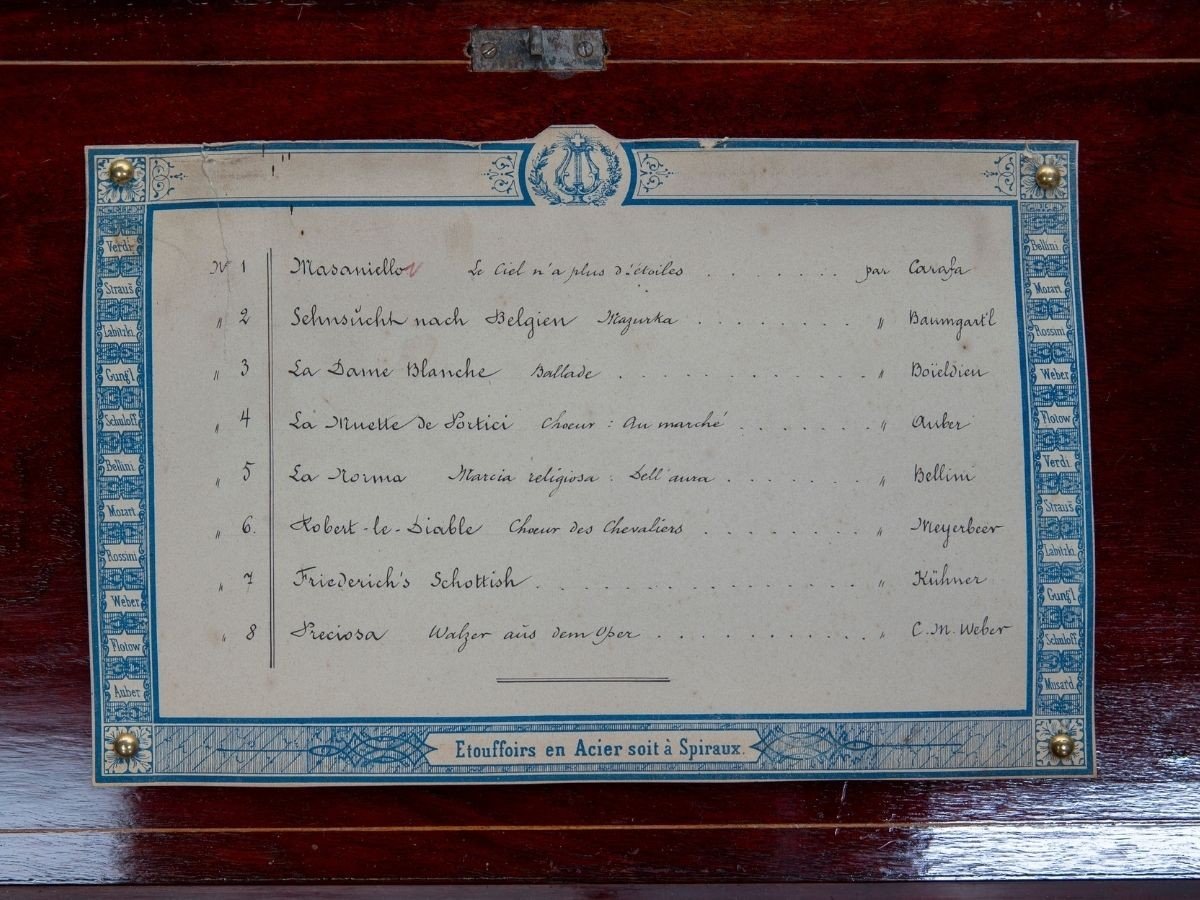 Nº 1 Masaniello Le Ciel n'a plus d'étoiles . . . . . . . . par Carafa
„ 2 Sehnsŭcht nach Belgien Mazurka . . . . . . . . . „ Baumgart'l
„ 3 La Dame Blanche Ballade . . . . . . . . . . . . . „ Boïeldieu
„ 4 La Muette de Portici Choeur : Au marché . . . . . . . „ Auber
„ 5 La Norma Marcia religiosa : Dell'aura . . . . . . . . „ Bellini
„ 6. Robert-le-Diable Choeur des Chevaliers . . . . . . . . „ Meyerbeer
„ 7 Friederich's Schottish . . . . . . . . . . . . . . . . „ Kühner
„ 8 Preciosa Walzer aŭs dem Oper . . . . . . . . . . . . „ C. M. Weber
Verdi
Straus̄
Labitzki
Gung'l
Schuloff
Bellini
Mozart
Rossini
Weber
Flotow
Auber
Bellini
Mozart
Rossini
Weber
Flotow
Verdi
Straus̄
Labitzki
Gung'l
Schuloff
Musard
Etouffoirs en Acier soit à Spiraux.